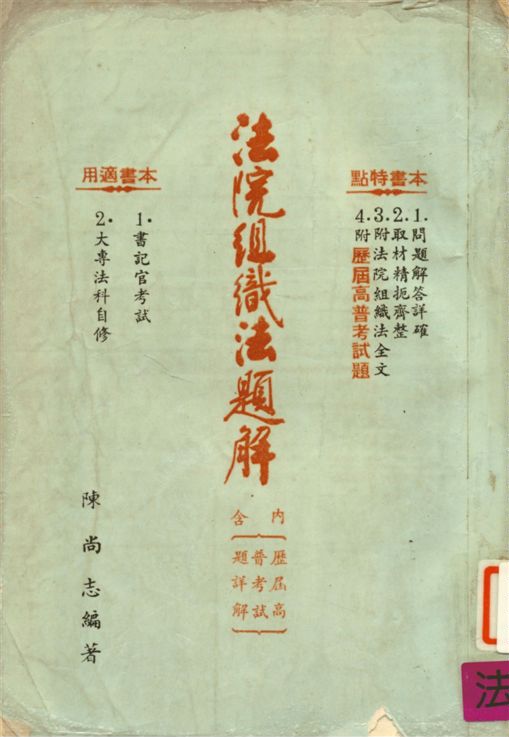 本書特點
1.問題解答詳確
2.取材精扼齊整
3.附法院組織法全文
4.附歷屆高普考試題
法院組織法題解
內含
歷屆高
普考試
題詳解
本書適用
1.書記官考試
2.大專法科自修
陳尚志編著
法